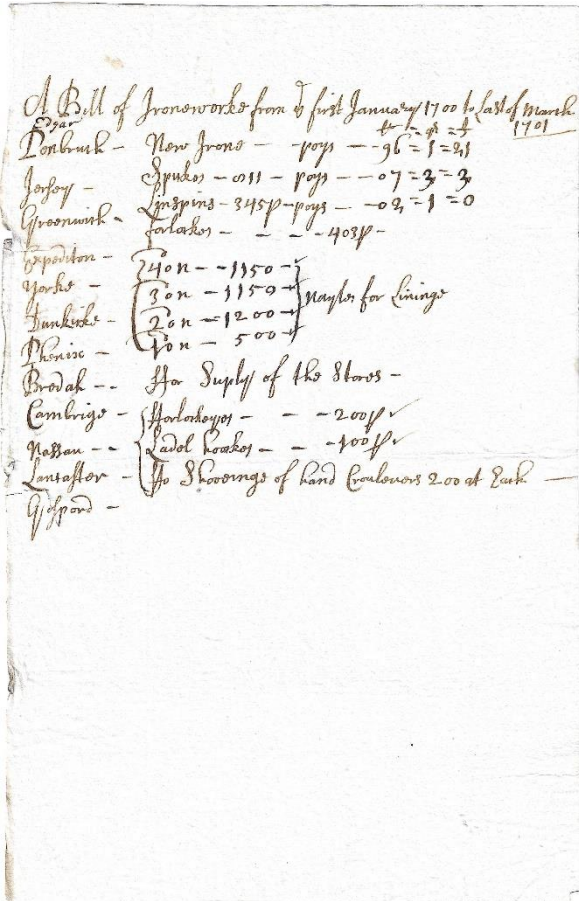 A Bill of Ironeworke from ye first January 1700 to Last of March
1701
Edgar
Penbruck - New Irone - - poys - - 96 = 1 = 21
Jersey - Spukes - 811 - poys - - 07 = 3 = 3
Greenwich - Linspins - 345p - poys - - 02 = 1 = 0
forlockes - - - - 403p -
Expediton - 40n - - 1150 -
Yorke - 30n - 1150 -
nayles for Lininge
Dunkirke - 20n - 1200 -
Phenix - 10n - 500 -
Bredah - - ffor Suply of the Stores -
Cambrige - fforlockeyes - - - 200p
Nassau - - Ladel hookes - - - 100p
Lancaster - ffo Shooeinge of hand Crouleuers 200 at Each -
Gosport -